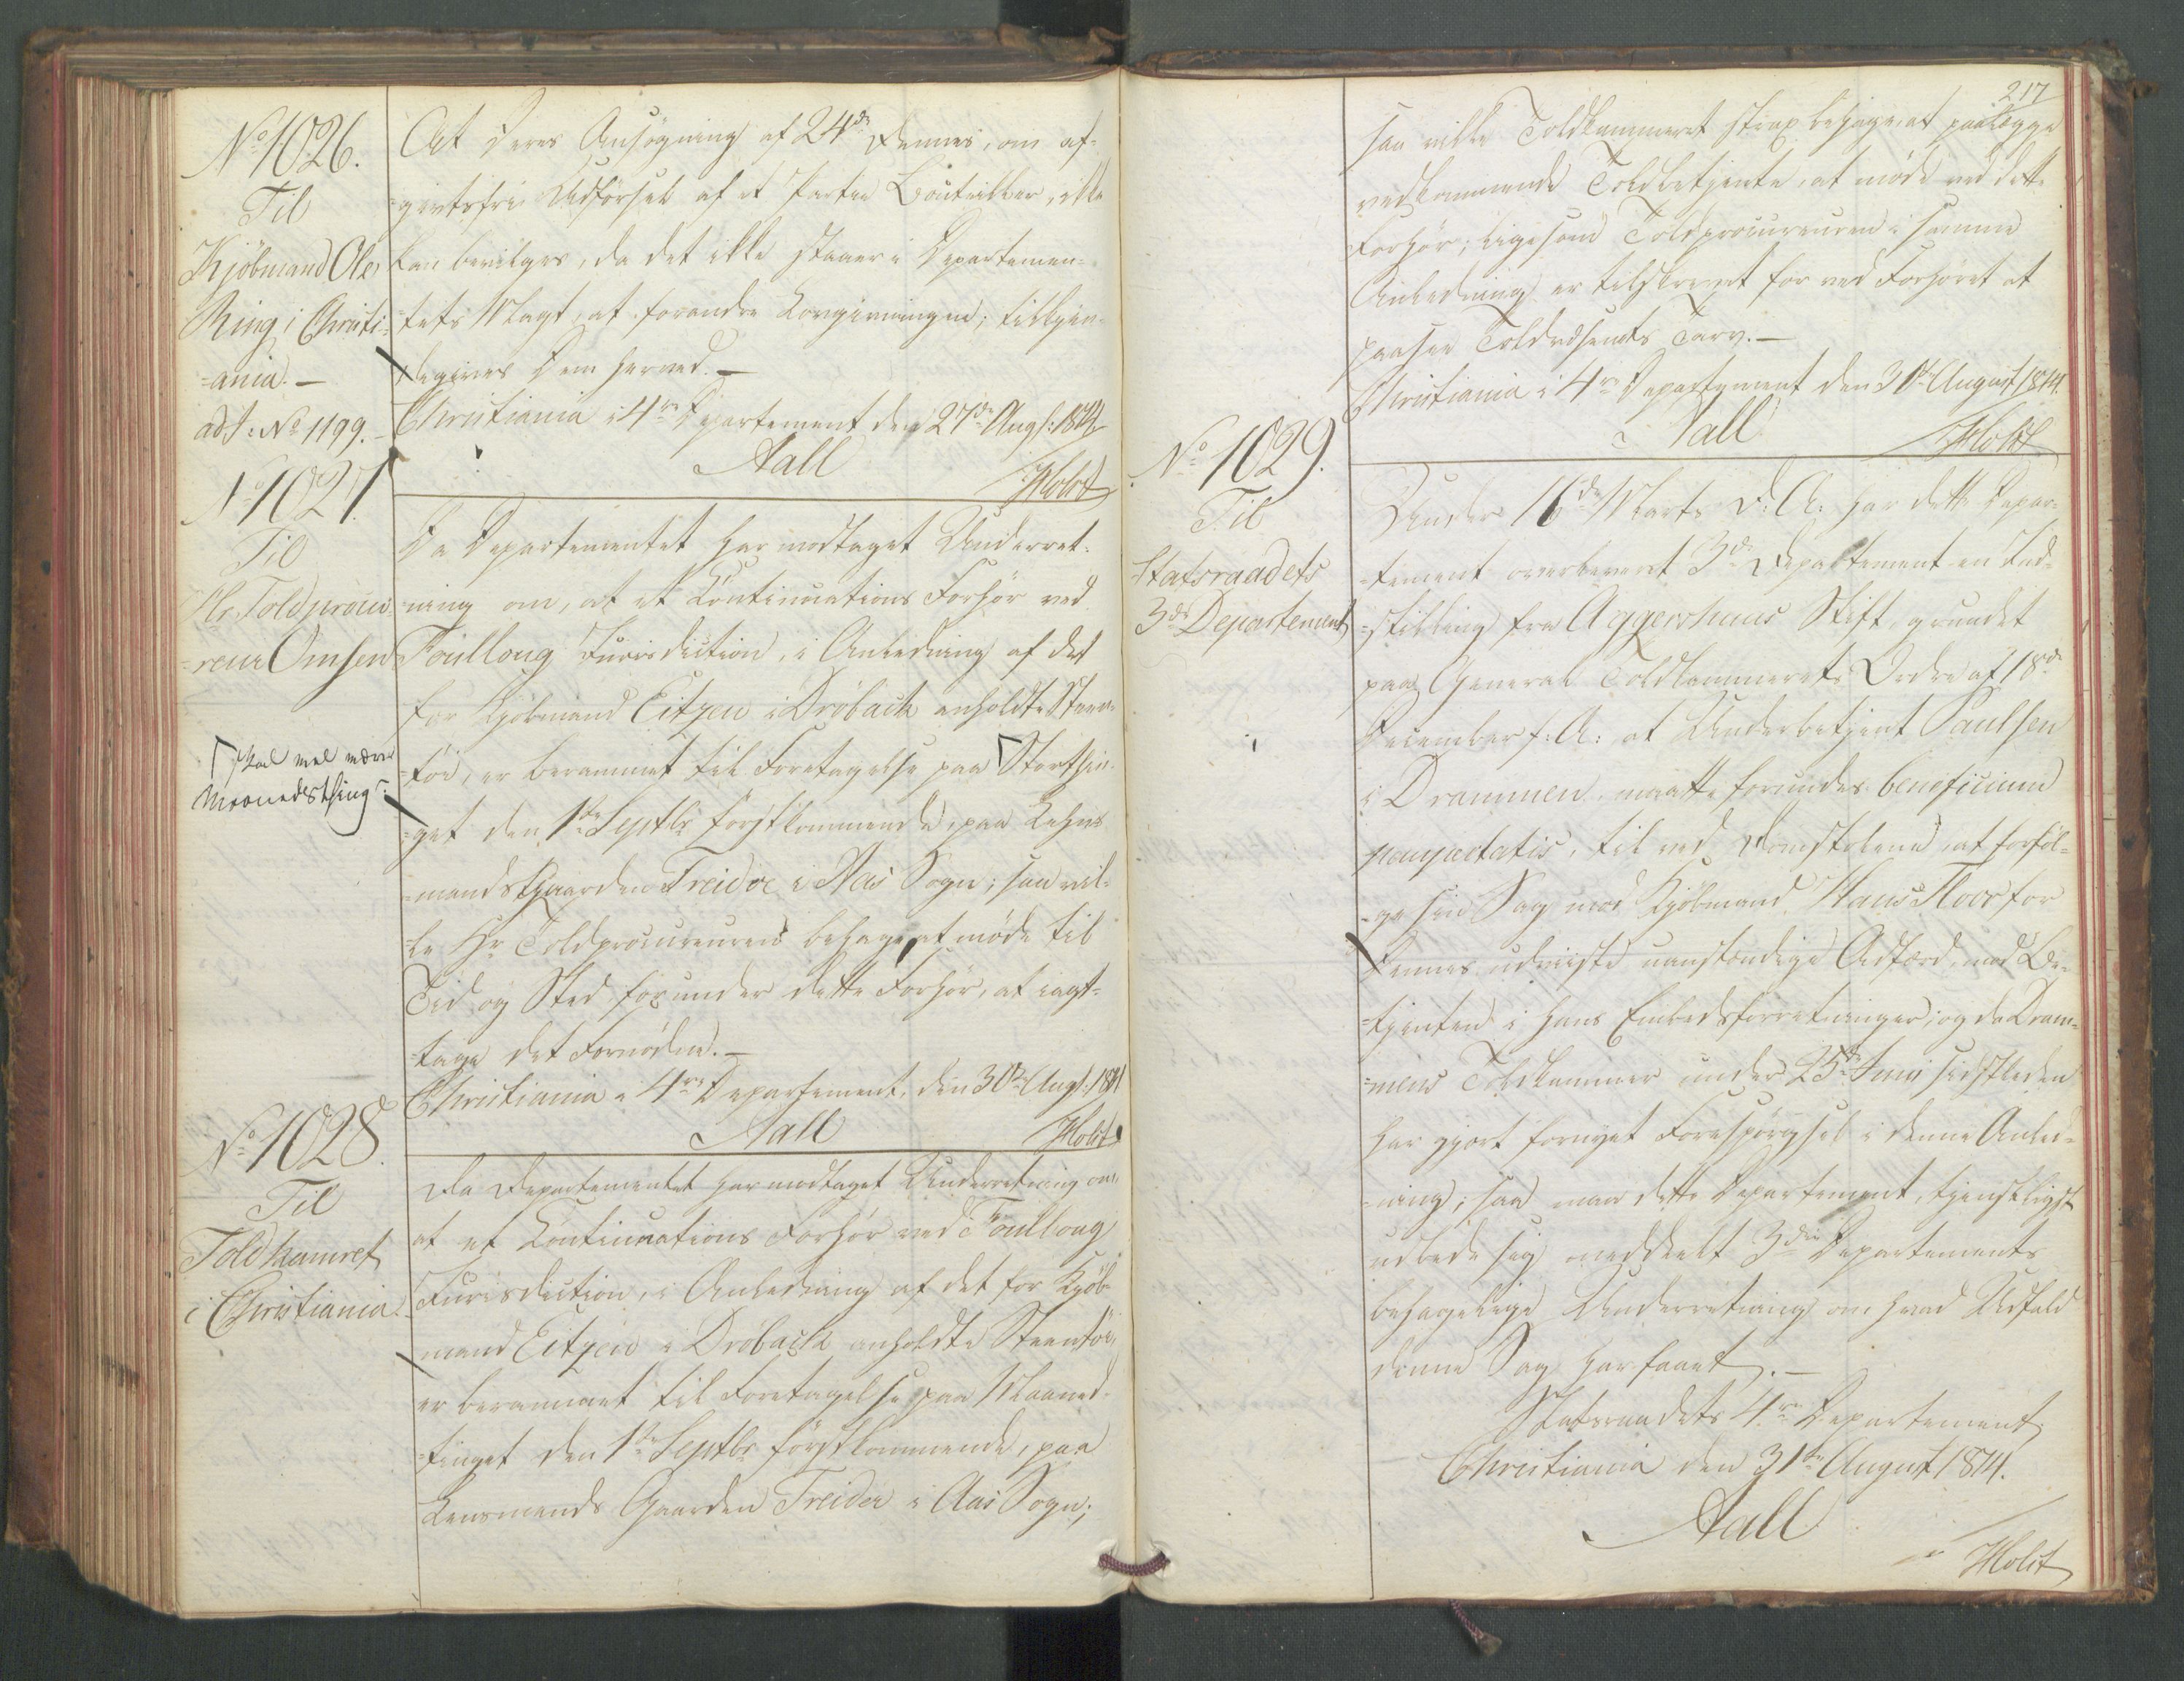 No 1026.
Til
Kjöbmand Ole
Ring i Christi-
=ania.-
adJ: No 1199.-
At Deres Ansøgning af 24de dennes, om af-
=giftsfrie Udførsel af et Partie Bouteiller, ikke
kan bevilges, da det ikke staaer i Departemen-
=tets Magt, at forandre Lovgivningen; tilkjen-
degives Dem herved.-
Christiania i 4re Departement den 27de Augs: 1814.
Aall
Holst
No 1027.
Til
Hr. Toldprocu-
=reur Omsen
Da Departementet har modtaget Underret-
=ning om, at et Continuations Forhør ved
Foulloug Jurisdiction, i Anledning af det
for Kjöbmand Eitzen i Dröbach anholdte Steen-
=töi, er berammet til Foretagelse paa ⌈Storthin-
=get den 1ste Septbr førstkommende, paa Lehns-
=mandsgaarden Treider i Aas Sogn; saa vil-
=le Hr Toldprocureuren behage, at møde til
Tid og Sted for under dette Forhør, at iagt-
=tage det Fornødne.-
⌈skal vel være
Maanedsthing?
Christiania i 4re Departement, den 30te Augs: 1814
Aall
Holst
No 1028.
Til
Toldkamret
i Christiania.
Da Departementet har modtaget Underretning om,
at et Continuations Forhør ved Foulloug
Jurisdiction, i Anledning af det for Kjöb-
mand Eitzen i Dröbach anholdte Steentöi,
er berammet til Foretagelse paa Maaned-
=tinget den 1ste Septbr førstkommende, paa
Lensmands Gaarden Treider i Aas Sogn;
217
saa ville Toldkammeret strax behage, at paalægge
vedkommende Toldbetjente, at møde ved dette
Forhør; ligesom Toldprocureuren i samme
Anledning er tilskrevet for ved Forhøret at
paasee Toldvæsenets Tarv.-
Christiania i 4re Departement den 31te August 1814.
Aall
Holst
No 1029.
Til
Statsraadets
3de Departement
Under 16de Marts d: A: har dette Depar-
=tement overleveret 3de Departement en Ind-
=stilling fra Aggershuus Stift, grundet
paa General Toldkammerets Ordre af 18de
December f: A: at Underbetjent Paulsen
i Drammen, maatte forundes beneficium
paupertatis, til ved Domstolene, at forføl-
=ge sin Sag mod Kjöbmand Hans Floor for
dennes udviiste uanstændige Adfærd mod Be-
=tjenten i hans Embedsforretninger; og da Dram-
=mens Toldkammer under 25de Juni sidstleden
har gjort fornyet Forespørgsel i denne Anled-
=ning; saa maa dette Departement, tjenstligst
udbede sig meddeelt 3die Departements
behagelige Underretning om hvad Udfald
denne Sag har faaet.-
Statsraadets 4re Departement,
Christiania den 31te August 1814.
Aall
Holst